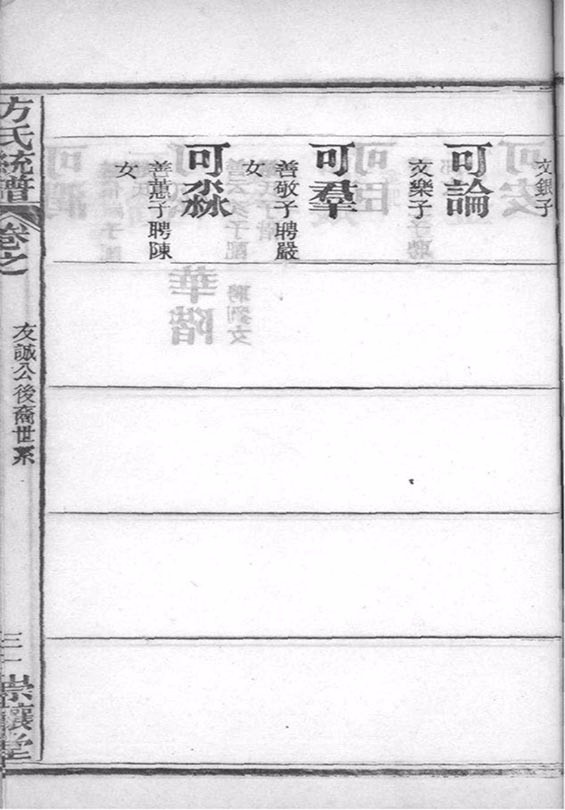 文銀子
可論
文樂子
可羣
善敬子聘嚴
女
可淼
善蕙子聘陳
女
方氏統譜
卷之
友誠公後裔世系
三
崇讓堂